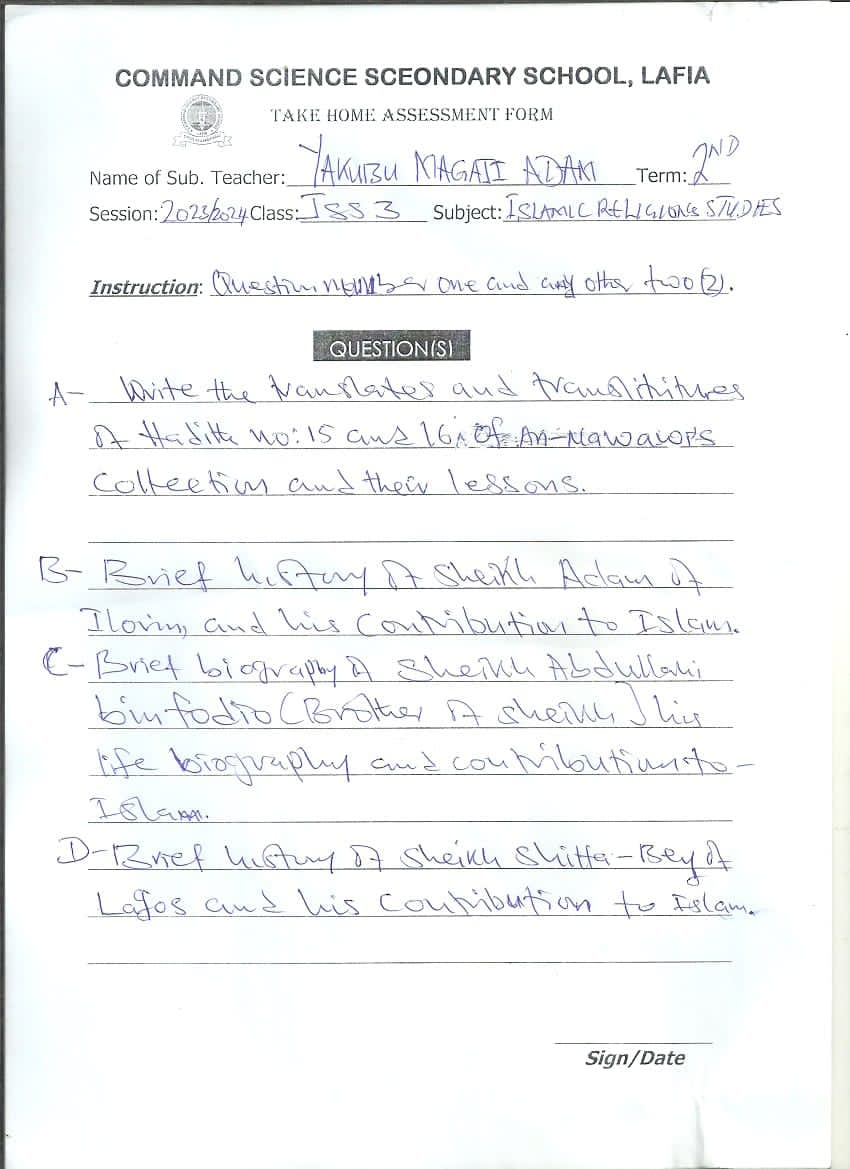 COMMAND SCIENCE SCEONDARY SCHOOL, LAFIA
TAKE HOME ASSESSMENT FORM
Name of Sub. Teacher: YAKUBU MAGAJI ADAM Term: 2ND
Session: 2023/2024 Class: JSS 3 Subject: ISLAMIC RELIGIOUS STUDIES
Instruction: Question number one and any other two (2).
QUESTION(S)
A- Write the translates and
of Hadith no: 15 and 16 of An-Nawawi's
Collection and their lessons.
B- Brief history of Sheikh Adam of
Ilorin, and his Contribution to Islam.
C- Brief biography of Sheikh Abdullahi
bin fodio (Brother of Sheikh) his
life biography and contribution to -
Islam.
D- Brief history of Sheikh Shitta-Bey of
Lagos and his Contribution to Islam.
Sign/Date